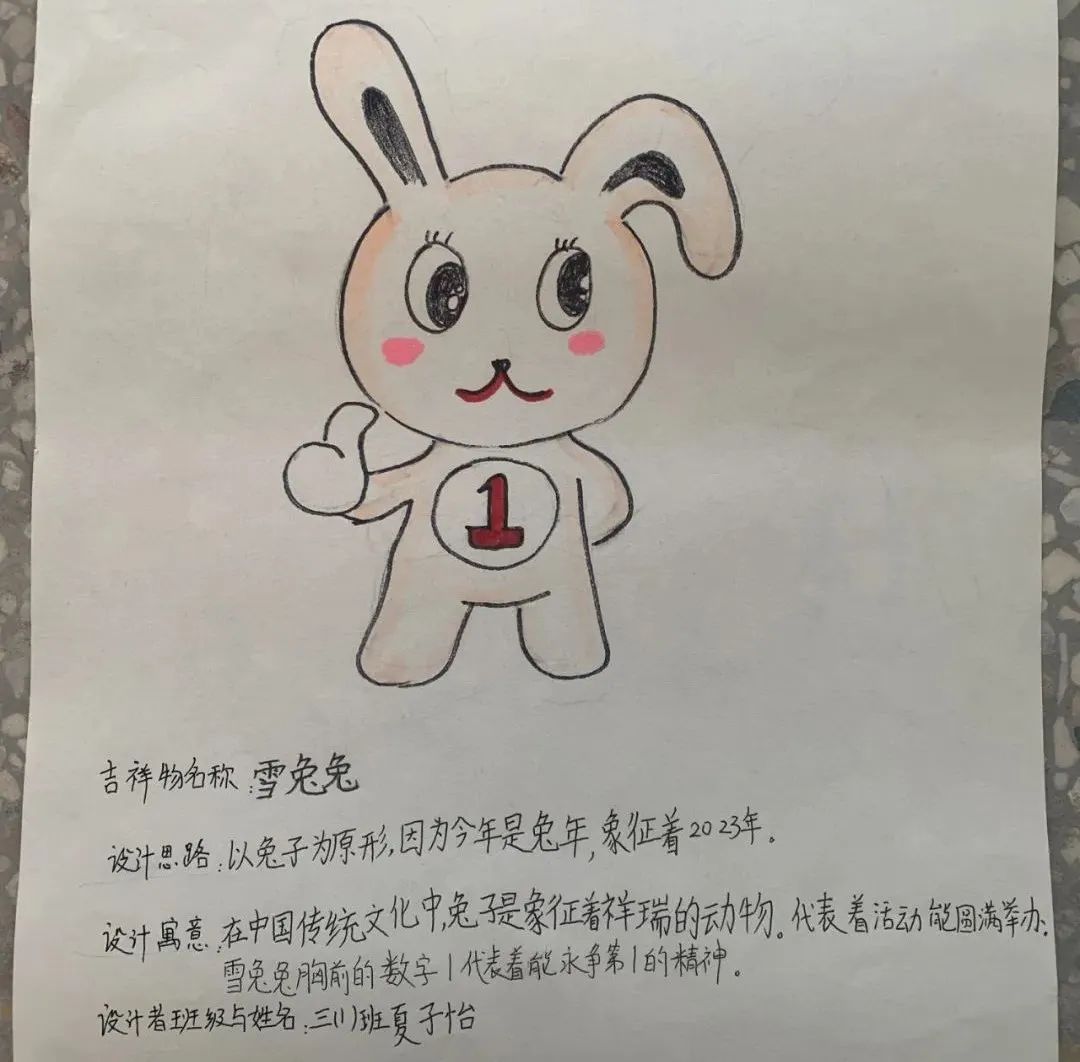 1
吉祥物名称:雪兔兔
设计思路:以兔子为原形,因为今年是兔年,象征着2023年。
设计寓意:在中国传统文化中,兔子是象征着祥瑞的动物。代表着活动能圆满举办.
雪兔兔胸前的数字1代表着能永争第1的精神。
设计者班级与姓名:三(1)班夏子怡